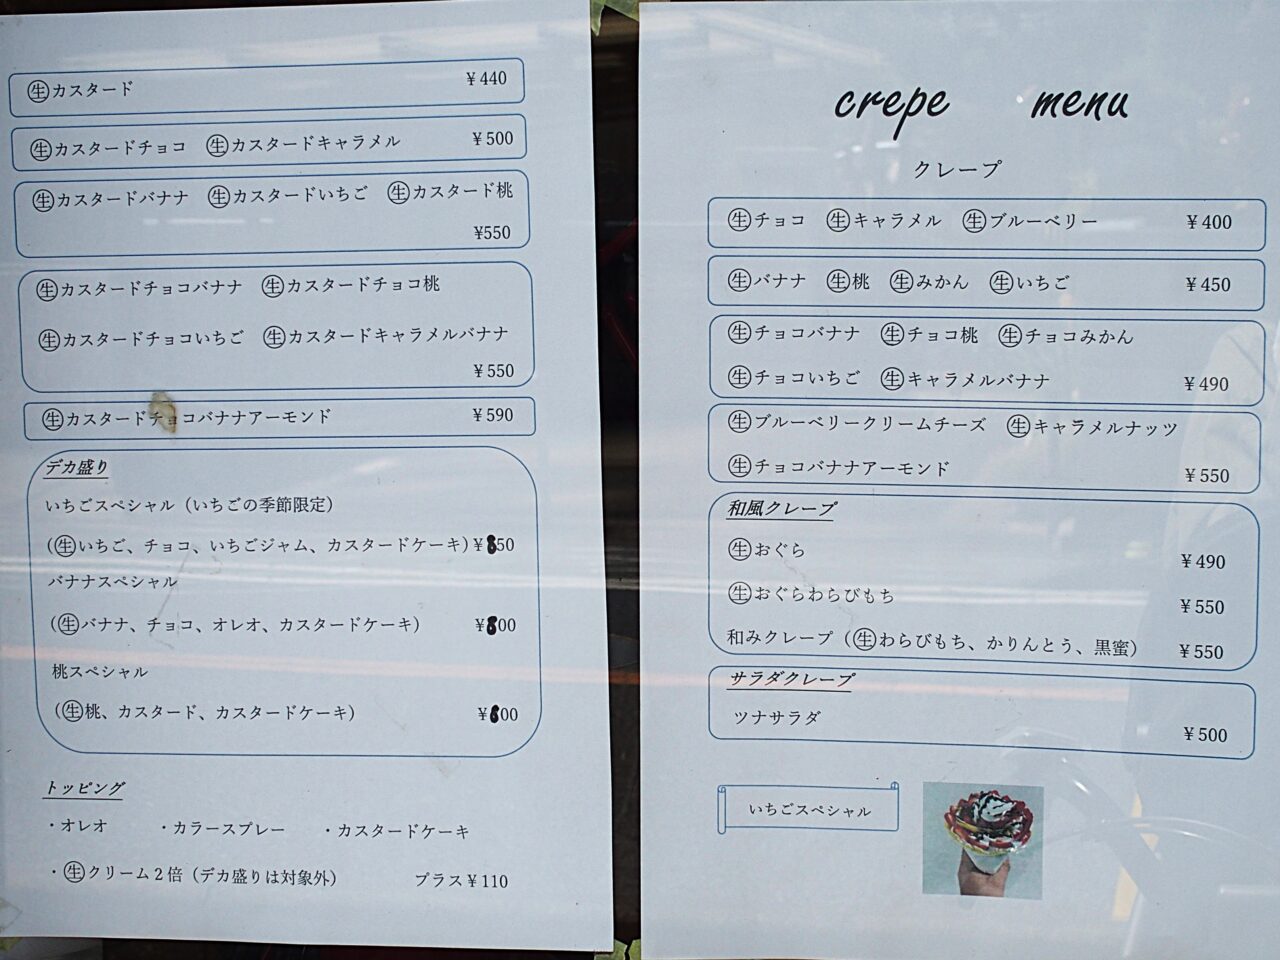 ㊤カスタード ¥440
㊤カスタードチョコ ㊤カスタードキャラメル ¥500
㊤カスタードバナナ ㊤カスタードいちご ㊤カスタード桃
¥550
㊤カスタードチョコバナナ ㊤カスタードチョコ桃
㊤カスタードチョコいちご ㊤カスタードキャラメルバナナ
¥550
㊤カスタードチョコバナナアーモンド ¥590
デカ盛り
いちごスペシャル(いちごの季節限定)
(㊤いちご、チョコ、いちごジャム、カスタードケーキ)¥850
バナナスペシャル
(㊤バナナ、チョコ、オレオ、カスタードケーキ) ¥800
桃スペシャル
(㊤桃、カスタード、カスタードケーキ) ¥00
トッピング
・オレオ ・カラースプレー ・カスタードケーキ
・㊤クリーム2倍(デカ盛りは対象外) プラス¥110
crepe menu
クレープ
㊤チョコ ㊤キャラメル ㊤ブルーベリー ¥400
㊤バナナ ㊤桃 ㊤みかん ㊤いちご ¥450
㊤チョコバナナ ㊤チョコ桃 ㊤チョコみかん
㊤チョコいちご ㊤キャラメルバナナ ¥490
㊤ブルーベリークリームチーズ ㊤キャラメルナッツ
㊤チョコバナナアーモンド ¥550
和風クレープ
㊤おぐら ¥490
㊤おぐらわらびもち ¥550
和みクレープ(㊤わらびもち、かりんとう、黒蜜) ¥550
サラダクレープ
ツナサラダ ¥500
いちごスペシャル